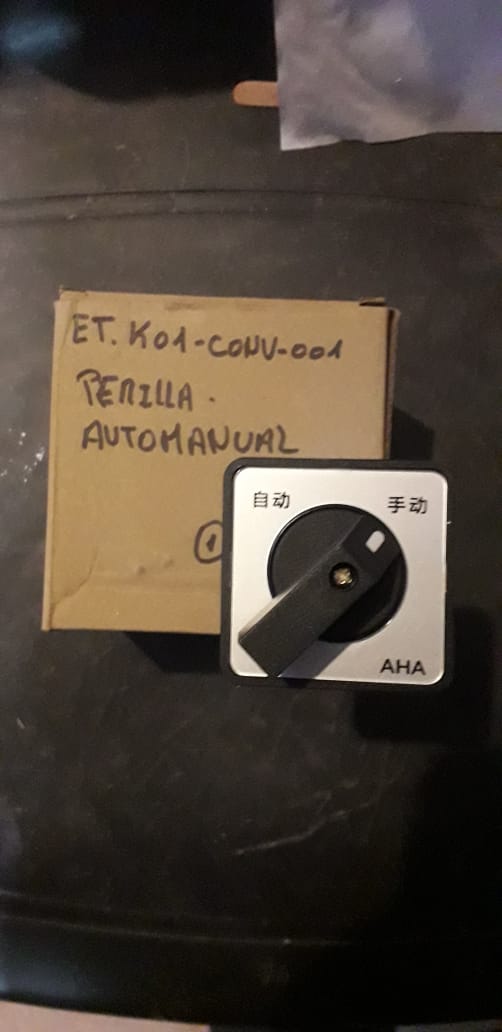 ET. K01-CONV-001
PERILLA.
AUTOMANUAL
1
自动
手动
AHA